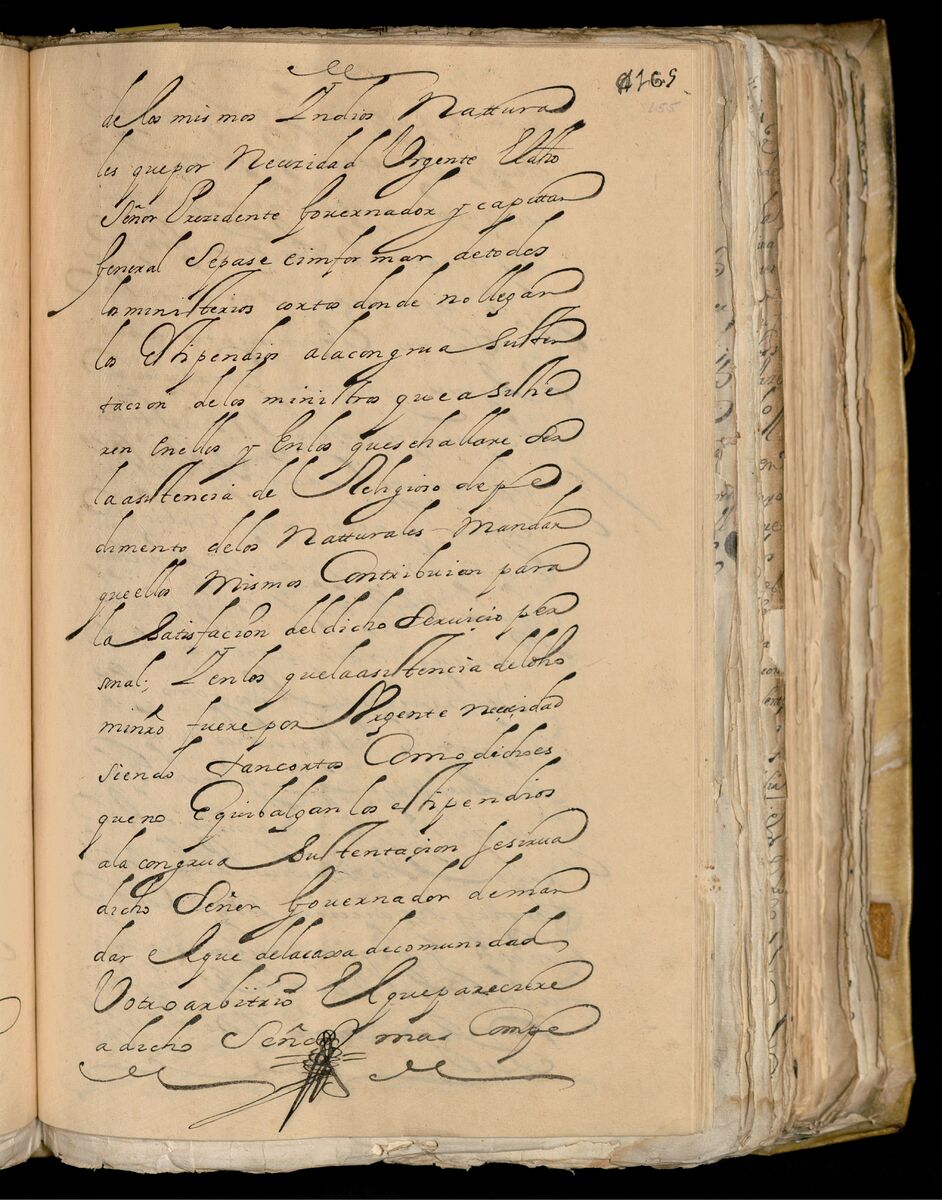 165
155
de los mismos Indios Nattura
les que por Necezidad Urgente El dho
Señor Prezidente Governador y capitan
General Se pase e imformar de todos
los ministerios cortos donde no llegan
los Estipendios a la congrua Susten
tacion de los ministros que asistie
ren En ellos y En los que se hallare Ser
la asistencia de Religioso de pe
dimento de los Natturales Mandar
que ellos Mismos Contribuian para
la Satisfacion del dicho Servicio per
sonal; Y en los que la asistencia del dho
minro fuere por Urgente necesidad
siendo tan cortos Como dicho es
que no Equibalgan los estipendios
a la congrua Sustentaçion se sirva
dicho Señor Governador de man
dar el que de la caxa de comunidad
U otro arbitrio El que pareciere
a dicho Señor mas Compe